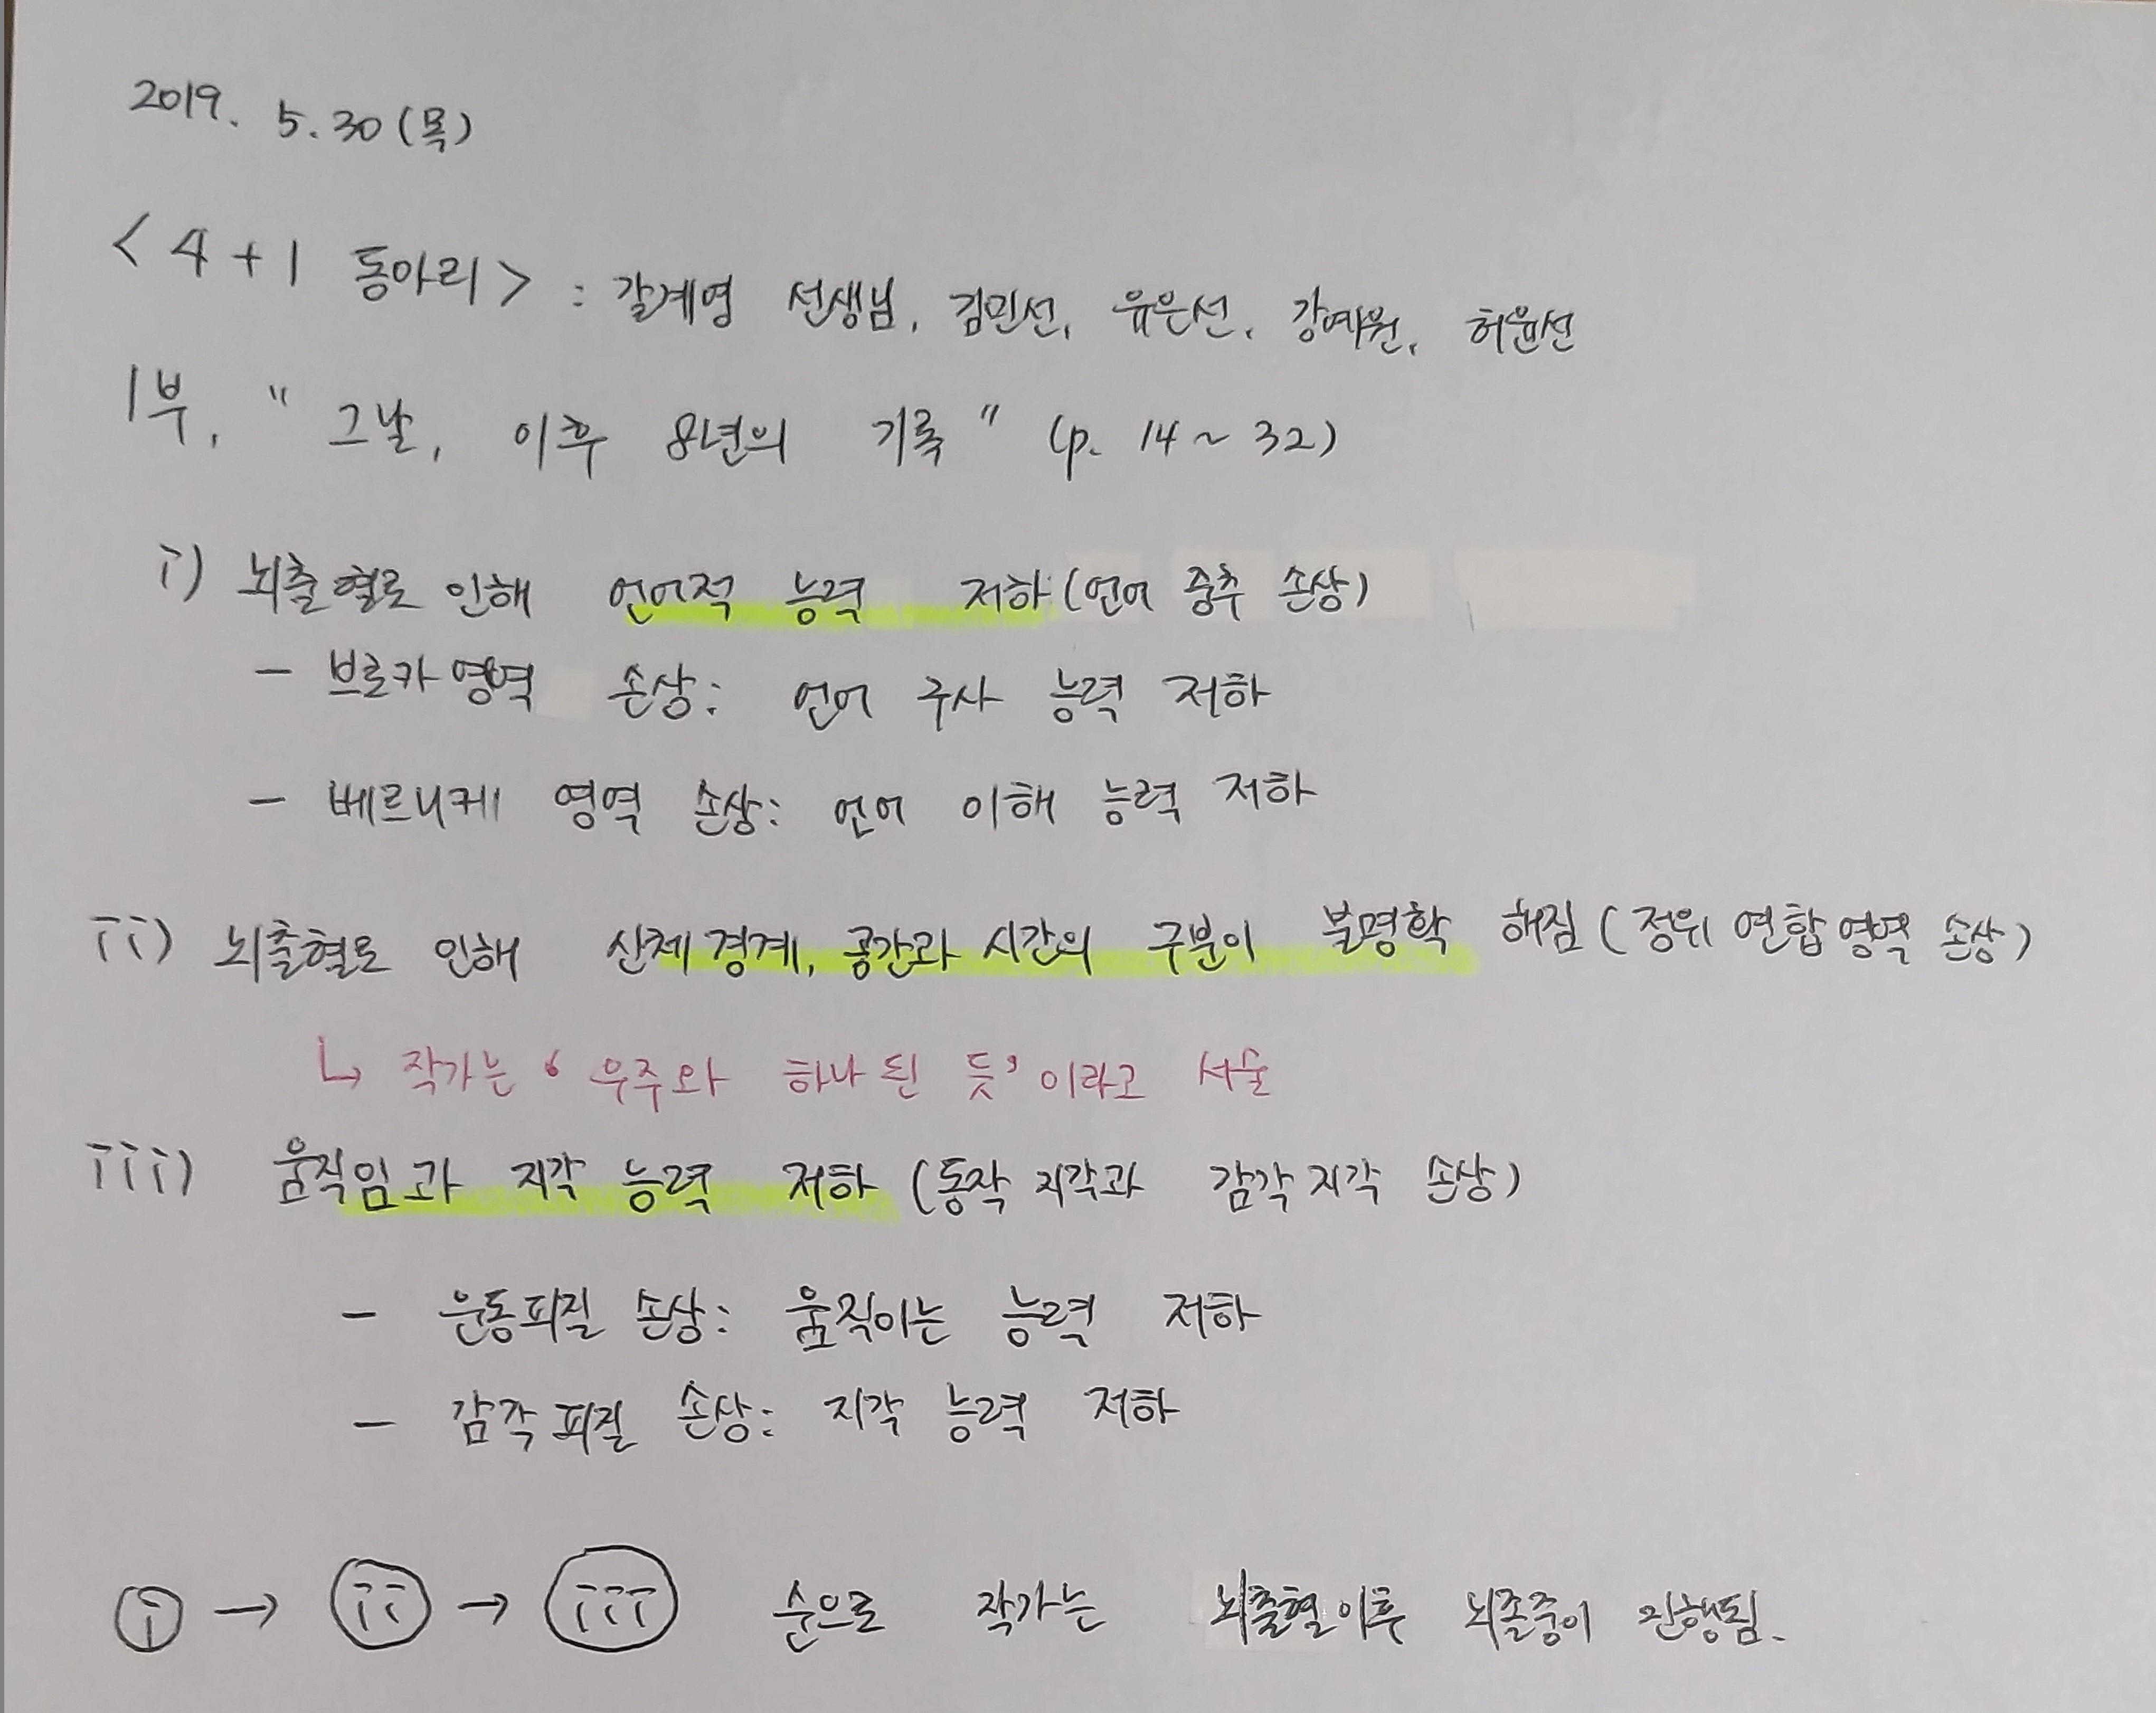 2019. 5.30(목)
<4+1 동아리> : 갈계영 선생님, 김민선, 유은선, 강예원, 허윤선
1부, " 그날, 이후 8년의 기록 " (p. 14 ~ 32)
i) 뇌출혈로 인해 언어적 능력 저하 (언어 중추 손상)
- 브로카 영역 손상: 언어 구사 능력 저하
- 베르니케 영역 손상: 언어 이해 능력 저하
ii) 뇌출혈로 인해 신체 경계, 공간과 시간의 구분이 불명확 해짐 (정위 연합 영역 손상)
↳ 작가는 '우주와 하나 된 듯' 이라고 서술
iii) 움직임과 지각 능력 저하 (동작 지각과 감각 지각 손상)
- 운동피질 손상: 움직이는 능력 저하
- 감각 피질 손상: 지각 능력 저하
ⓘ → ii → iii 순으로 작가는 뇌출혈 이후 뇌졸중이 진행됨.